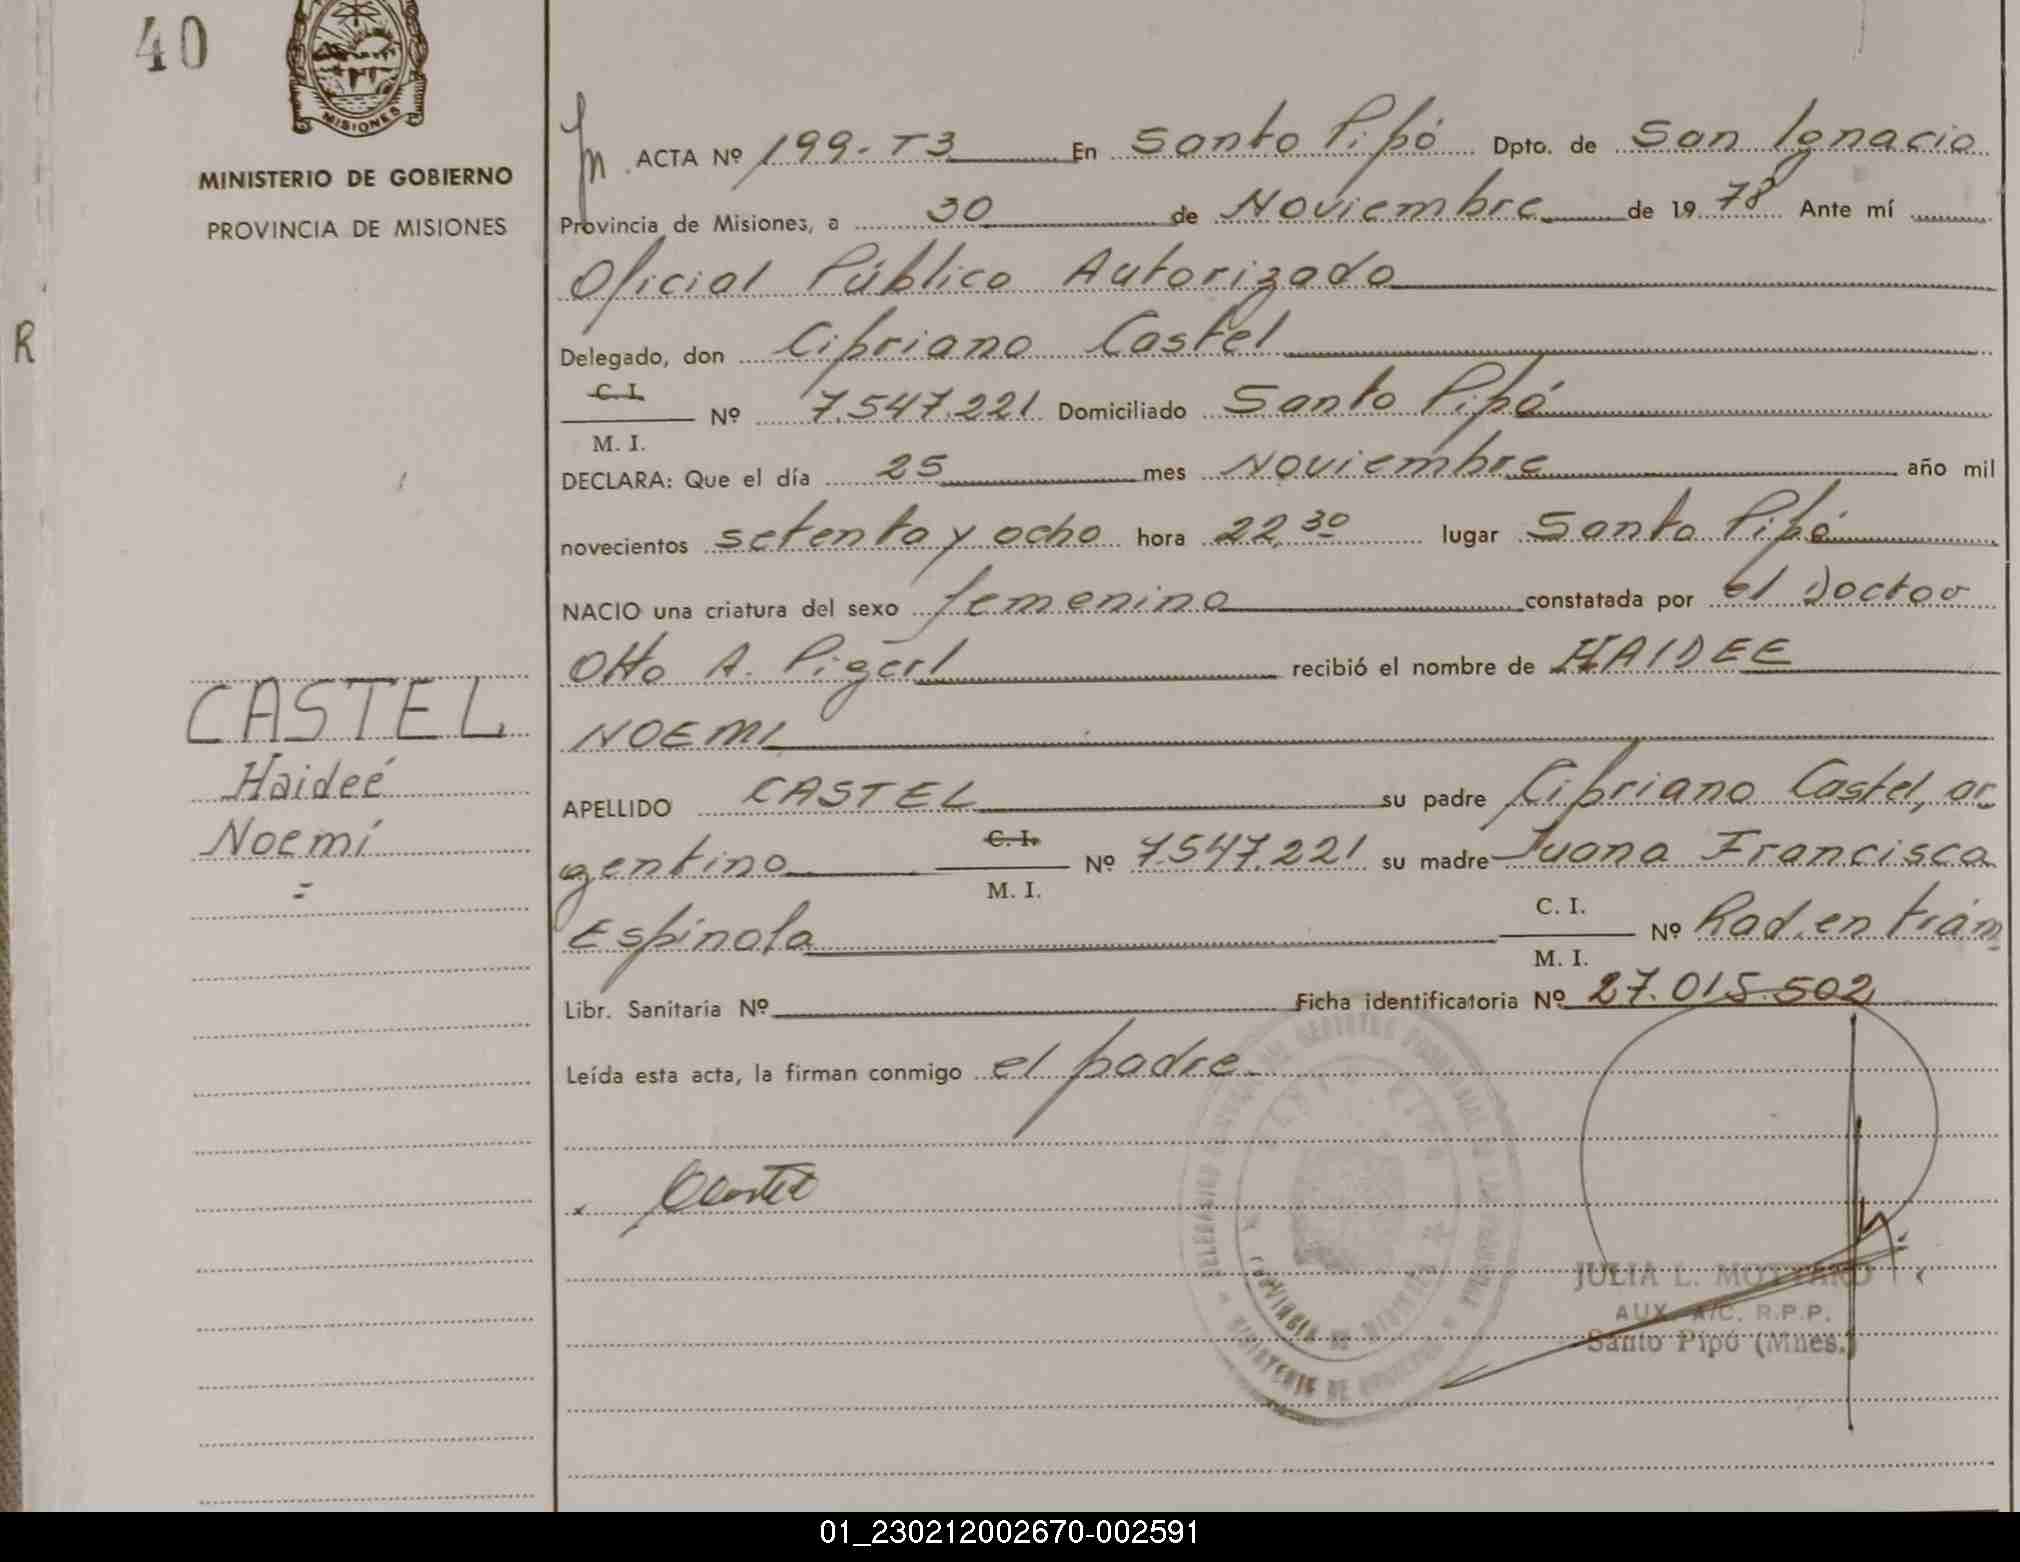 40
MISIONES
MINISTERIO DE GOBIERNO
PROVINCIA DE MISIONES
R
CASTEL
Haideé
Noemí
ACTA Nº 199-T3 En Santo Pipó Dpto. de San Ignacio
Provincia de Misiones, a 30 de Noviembre de 1978 Ante mí
Oficial Público Autorizado
Delegado, don Cipriano Castel
C. I.
M. I. Nº 7.547.221 Domiciliado Santo Pipó
DECLARA: Que el día 25 mes Noviembre año mil
novecientos setenta y ocho hora 22,30 lugar Santo Pipó
NACIO una criatura del sexo femenino constatada por el Doctor
Otto A. Pigerl recibió el nombre de HAIDEE
NOEMI
APELLIDO CASTEL su padre Cipriano Castel, ar
gentino C. I. M. I. Nº 7.547.221 su madre Juana Francisca
Espínola C. I. M. I. Nº Rad. en trám
Libr. Sanitaria Nº Ficha identificatoria Nº 27.015.502
Leída esta acta, la firman conmigo el padre
JULIA L. MOTTARD
AUX. A/C. R.P.P.
Santo Pipó (Mnes.)
01_230212002670-002591